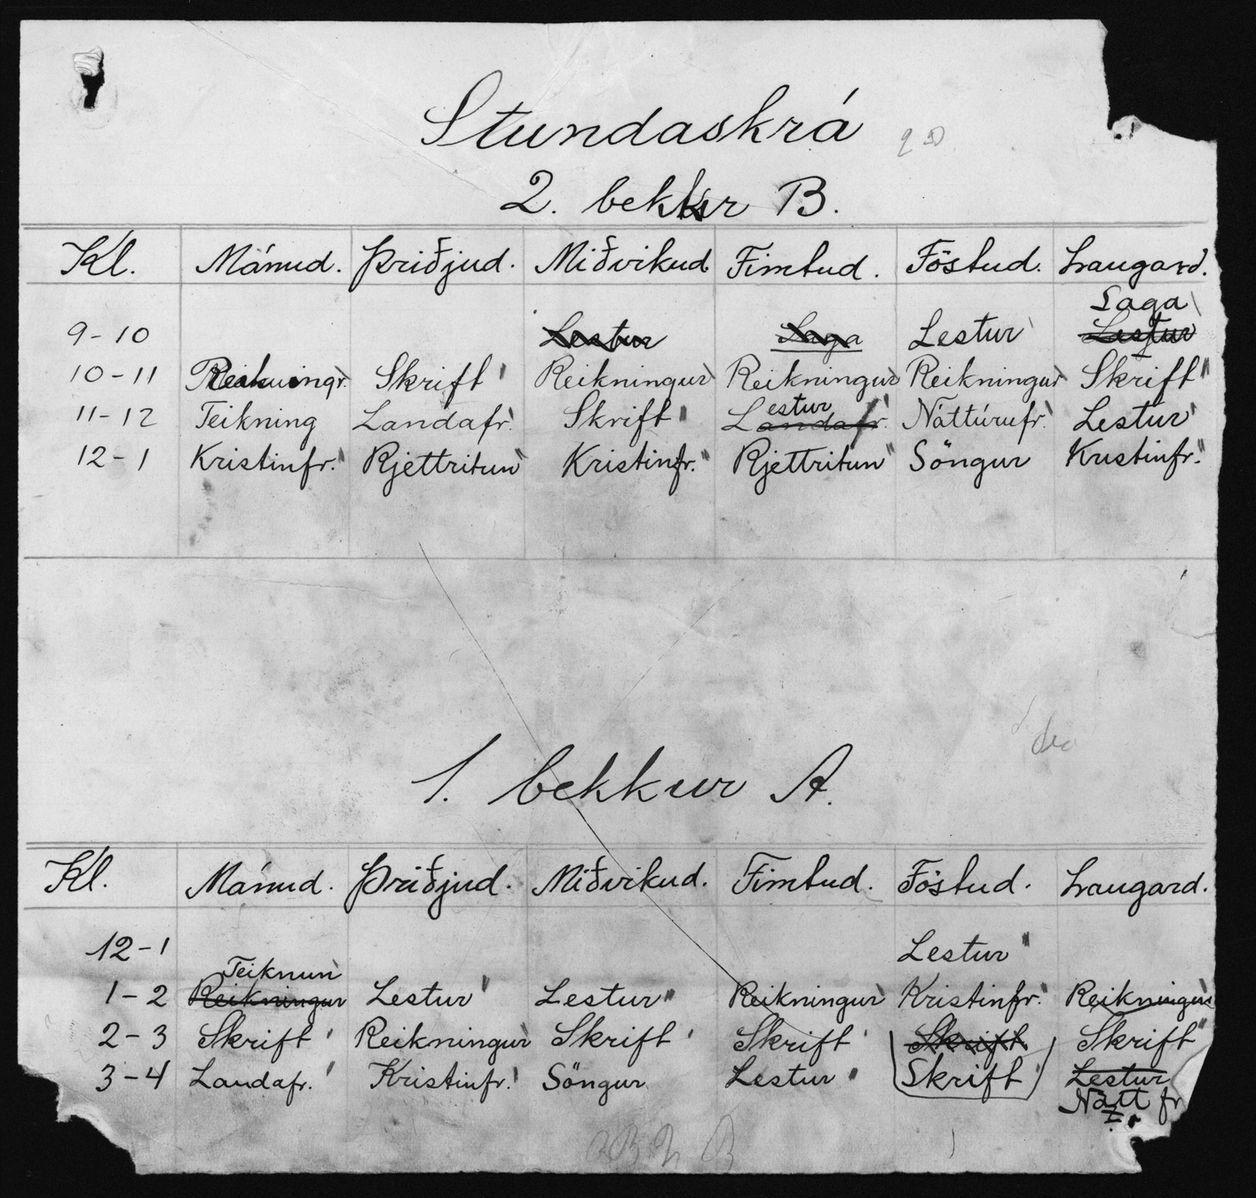 Stundaskrá
2. bekkur B.
Kl. Mánud. Þriðjud. Miðvikud. Fimtud. Föstud. Laugard.
Saga
9-10 Lestur Saga Lestur Lestur
10-11 Reikningr. Skrift Reikningur Reikningur Reikningur Skrift
11-12 Teikning Landafr. Skrift Landafr. Lestur Náttúrufr. Lestur
12-1 Kristinfr. Rjettritun Kristinfr. Rjettritun Söngur Kristinfr.
1. bekkur A.
Kl. Mánud. Þriðjud. Miðvikud. Fimtud. Föstud. Laugard.
12-1 Lestur
Teiknun
1-2 Reikningur Lestur Lestur Reikningur Kristinfr. Reikningur
2-3 Skrift Reikningur Skrift Skrift Skrift Skrift
3-4 Landafr. Kristinfr. Söngur Lestur Skrift Lestur
Nátt fr